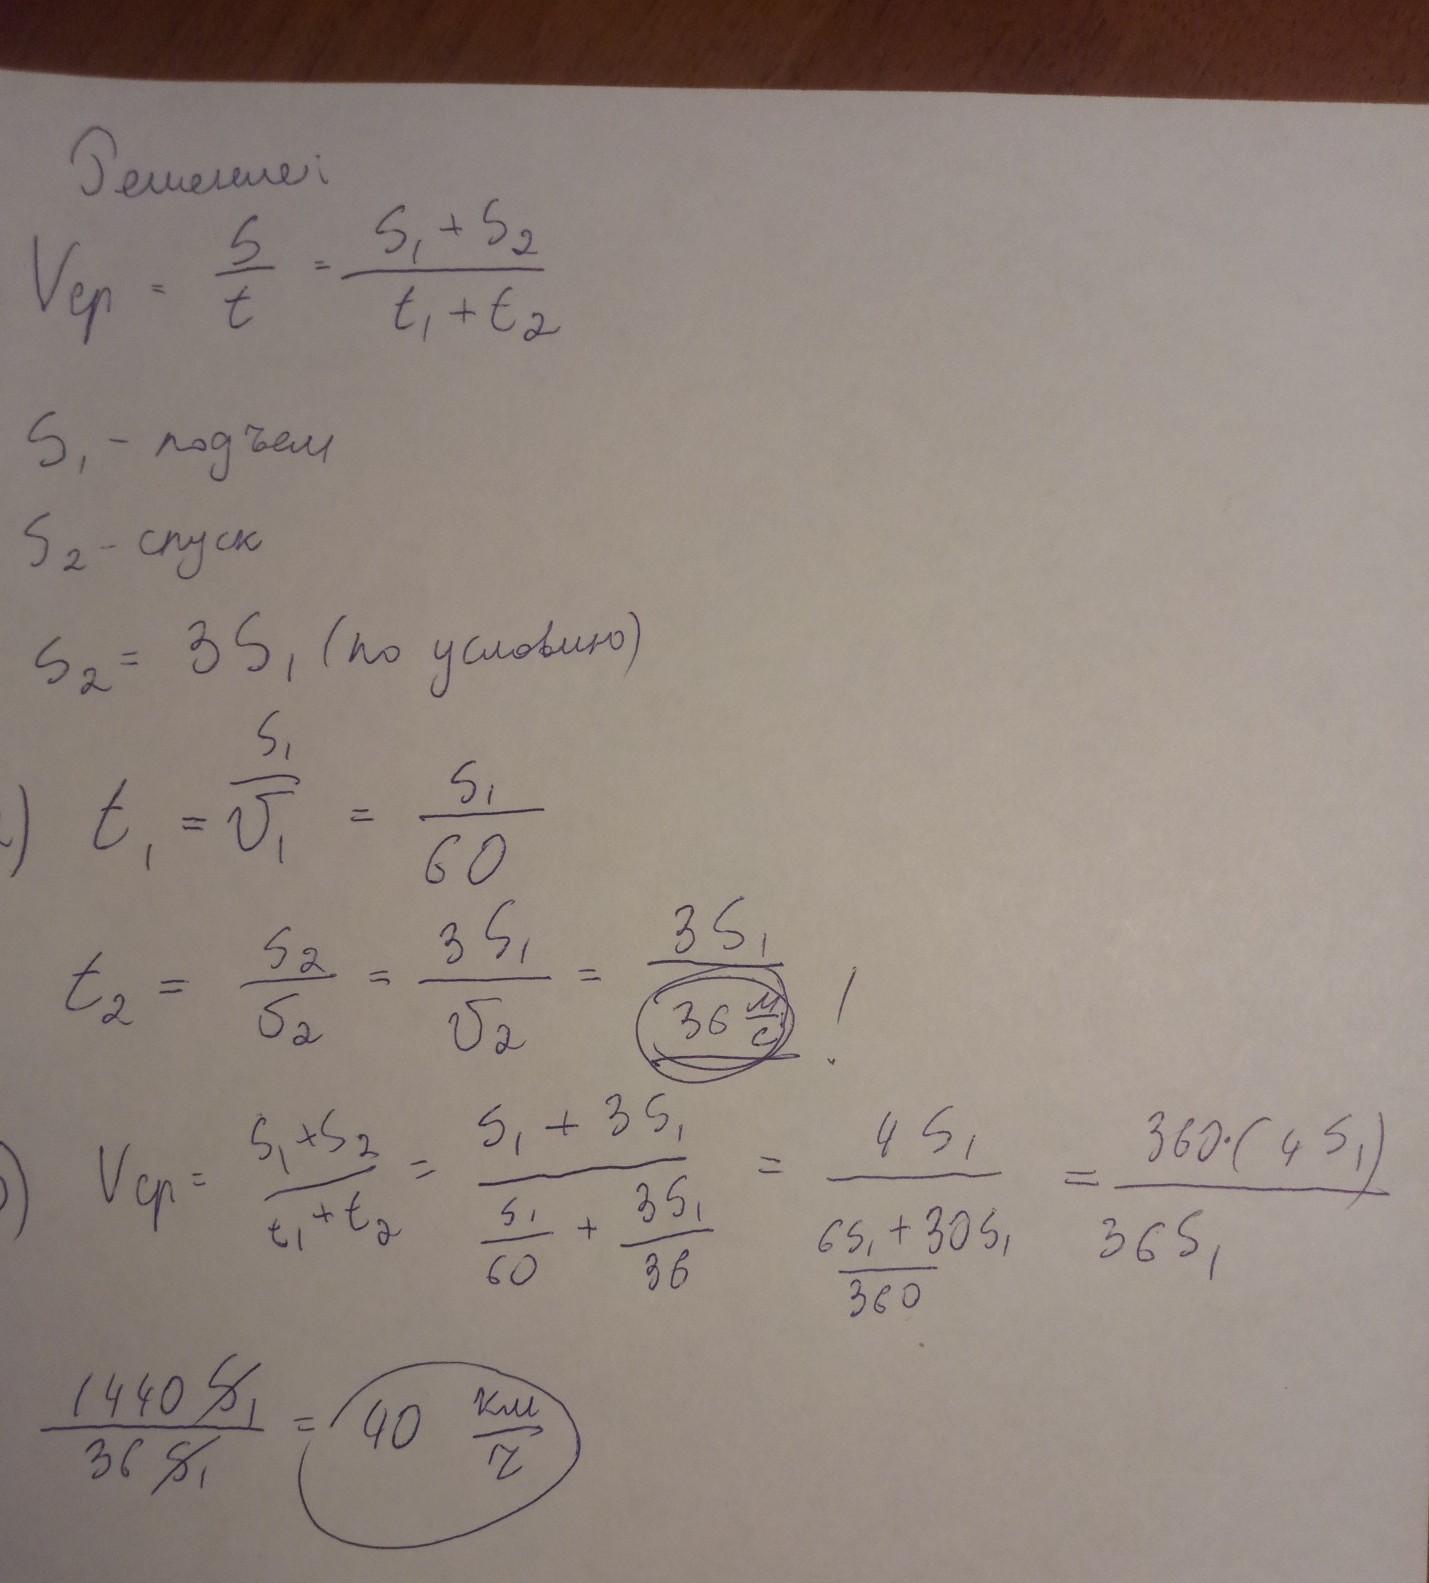 Решение:
Vср = S/t = (S₁ + S₂)/(t₁ + t₂)
S₁ - подъем
S₂ - спуск
S₂ = 3S₁ (по условию)
) t₁ = S₁/υ₁ = S₁/60
t₂ = S₂/υ₂ = 3S₁/υ₂ = 3S₁/(36 м/с) !
) Vср = (S₁+S₂)/(t₁+t₂) = (S₁ + 3S₁)/(S₁/60 + 3S₁/36) = 4S₁/((6S₁+30S₁)/360) = 360·(4S₁)/36S₁
1440S₁/36S₁ = 40 км/ч